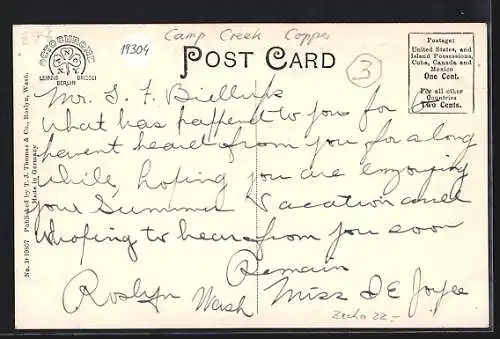 Camp Creek Copper
19304
POST CARD
3
OCTOCHROME
LEIPZIG
BERLIN
Postage:
United States, and
Island Possessions,
Cuba, Canada and
Mexico
One Cent.
For all other
Countries
Two Cents.
No. D 19307 Published by T. J. Thomas & Co., Roslyn, Wash.
Made in Germany
Mr. S. F.
What has happend to you for I
havent heard from you for a long
while, hoping you are enjoying
your Summer Vacation and
whoping to hear from you soon
Remain
Roslyn Wash Miss DE Joyce